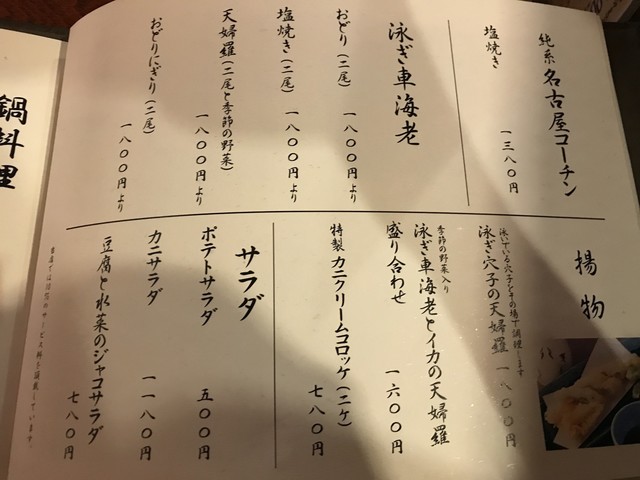 純系 名古屋コーチン
塩焼き
一三八〇円
泳ぎ車海老
おどり(二尾)
一八〇〇円より
塩焼き(二尾)
一八〇〇円より
天婦羅(二尾と季節の野菜)
一八〇〇円より
おどりにぎり(二尾)
一八〇〇円より
揚物
泳いでいる穴子をその場で調理します
泳ぎ穴子の天婦羅
一八〇〇円
季節の野菜入り
泳ぎ車海老とイカの天婦羅
盛り合わせ
一六〇〇円
特製 カニクリームコロッケ(二ケ)
七八〇円
サラダ
ポテトサラダ
五〇〇円
カニサラダ
一一八〇円
豆腐と水菜のジャコサラダ
七八〇円
当店では10%のサービス料を頂戴しています。
鍋料理